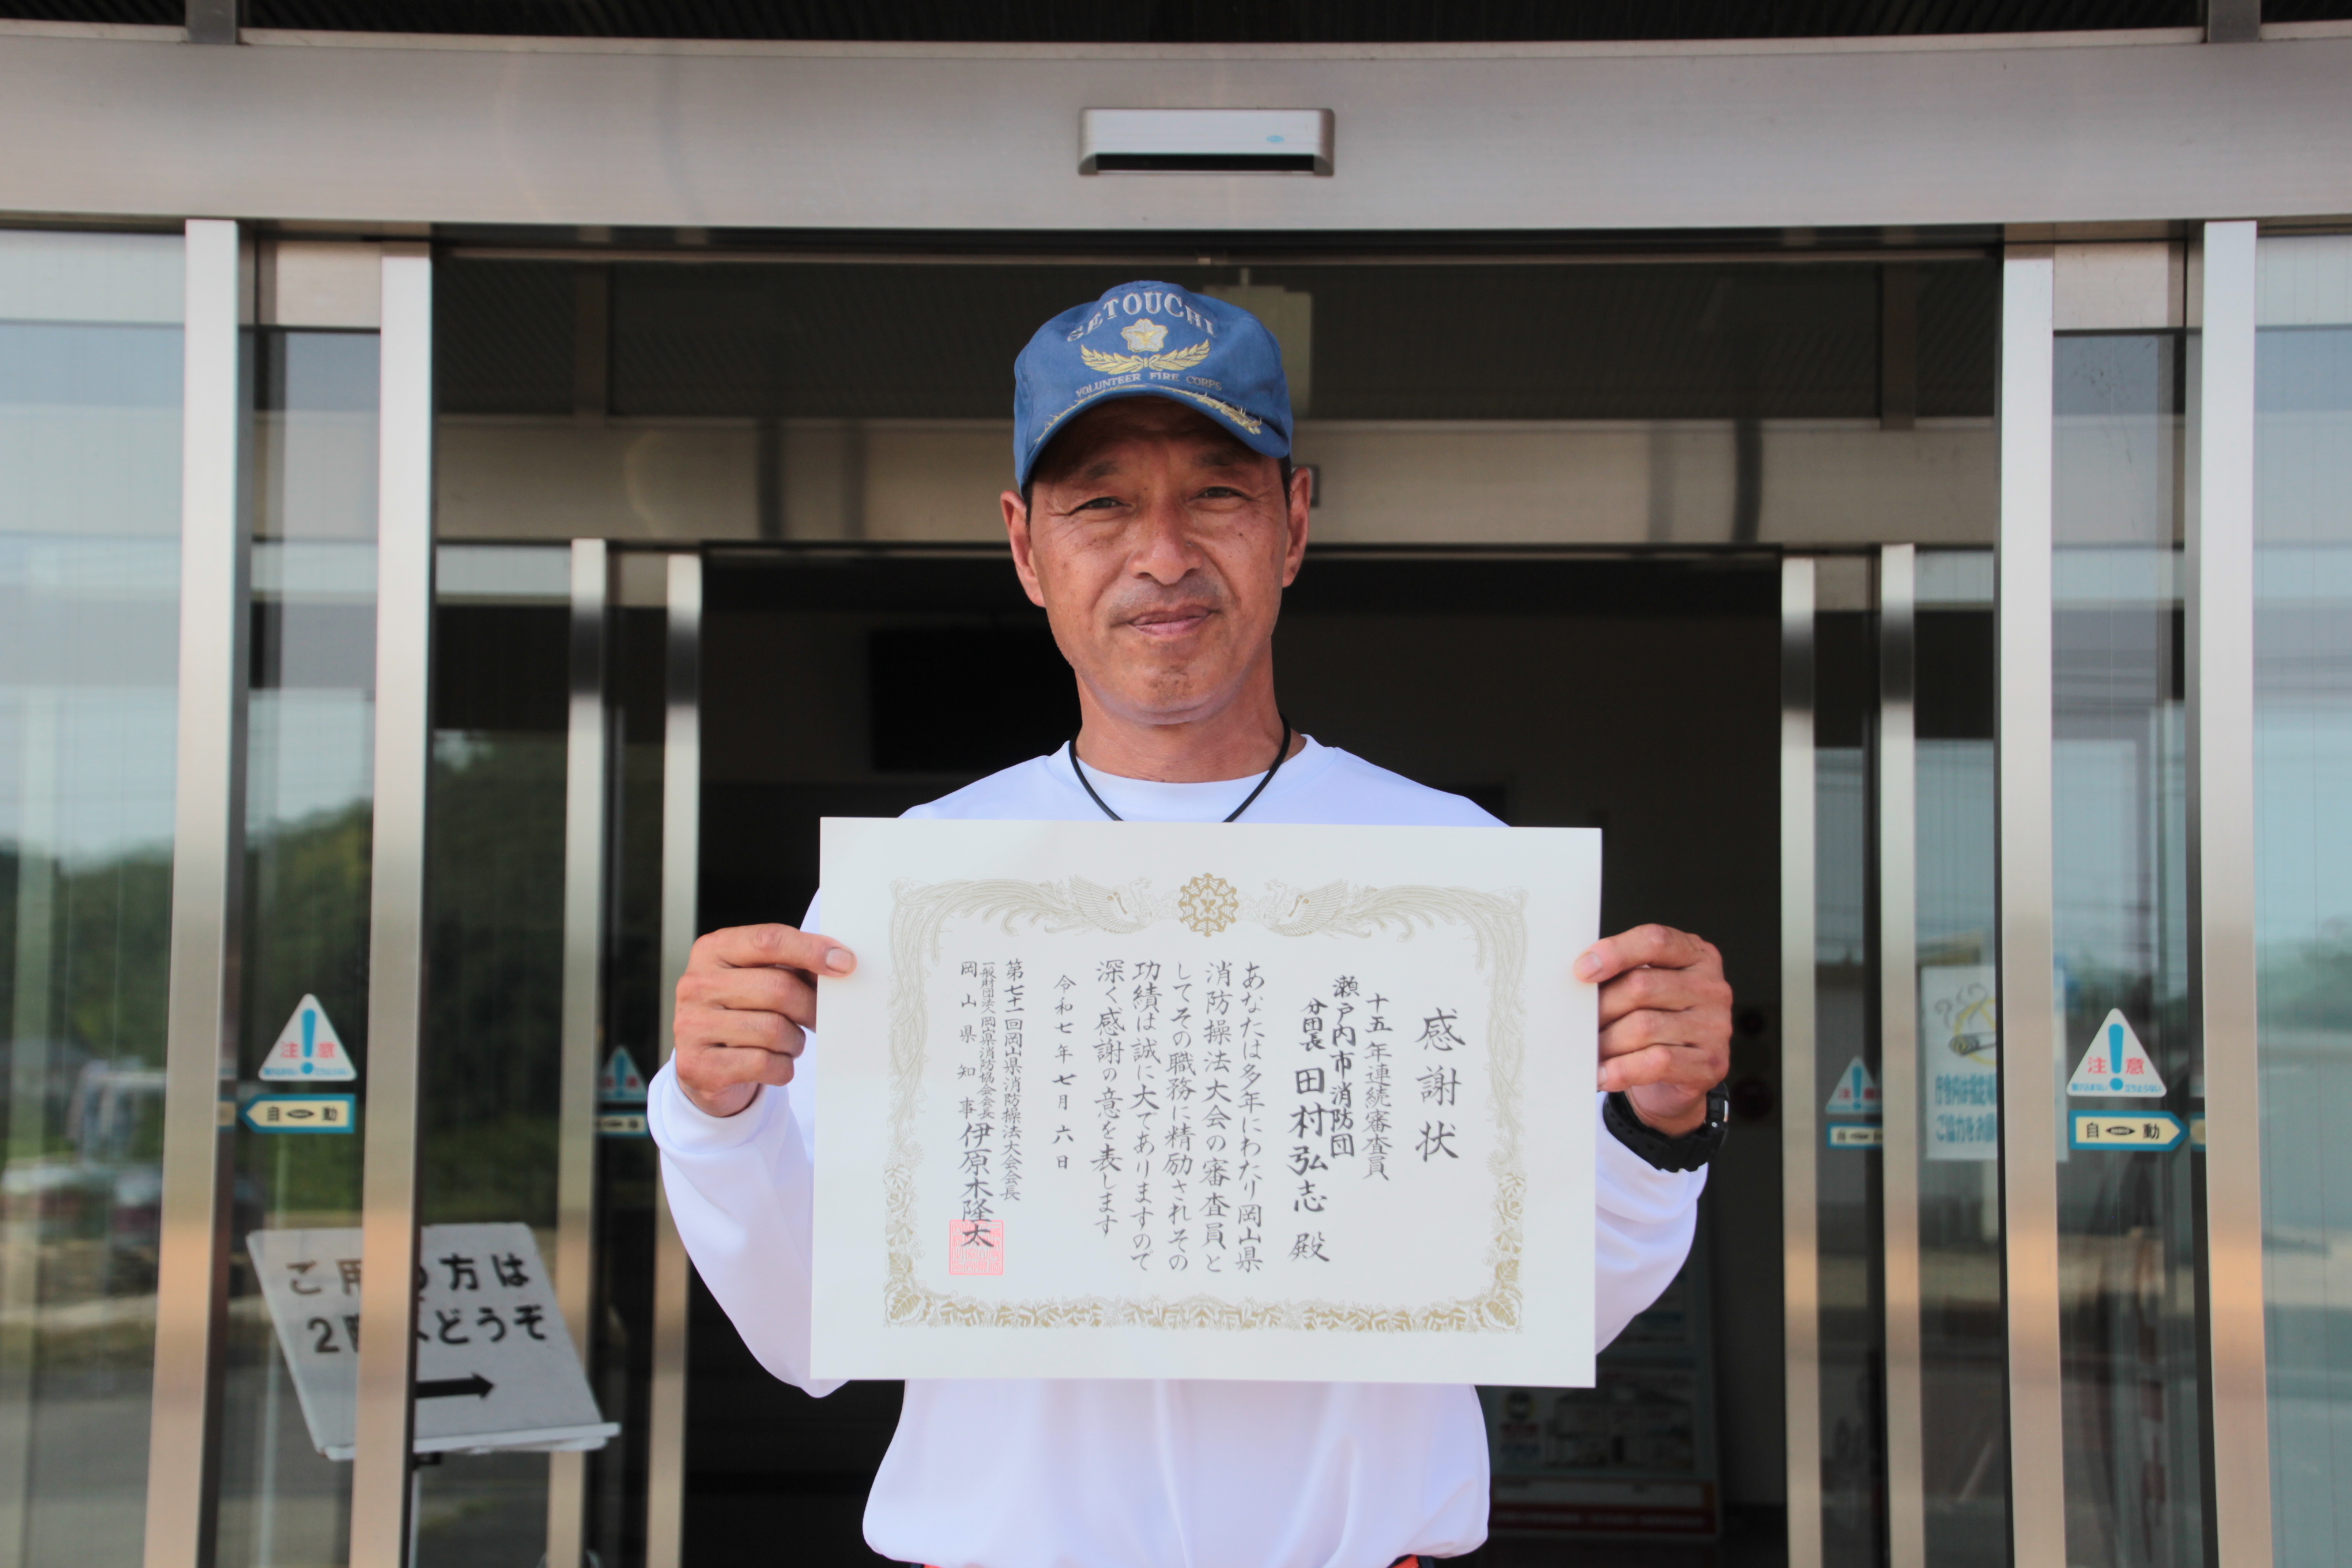 SETOUCHI
VOLUNTEER FIRE CORPS
感謝状
十五年連続審査員
瀬戸内市消防団
分団長 田村弘志 殿
あなたは多年にわたり岡山県
消防操法大会の審査員と
してその職務に精励されその
功績は誠に大でありますので
深く感謝の意を表します
令和七年七月六日
第七十一回岡山県消防操法大会会長
一般財団法人岡山県消防協会会長
岡山県知事 伊原木隆太
注意
自動
注意
自動
ご用の方は
2階へどうぞ